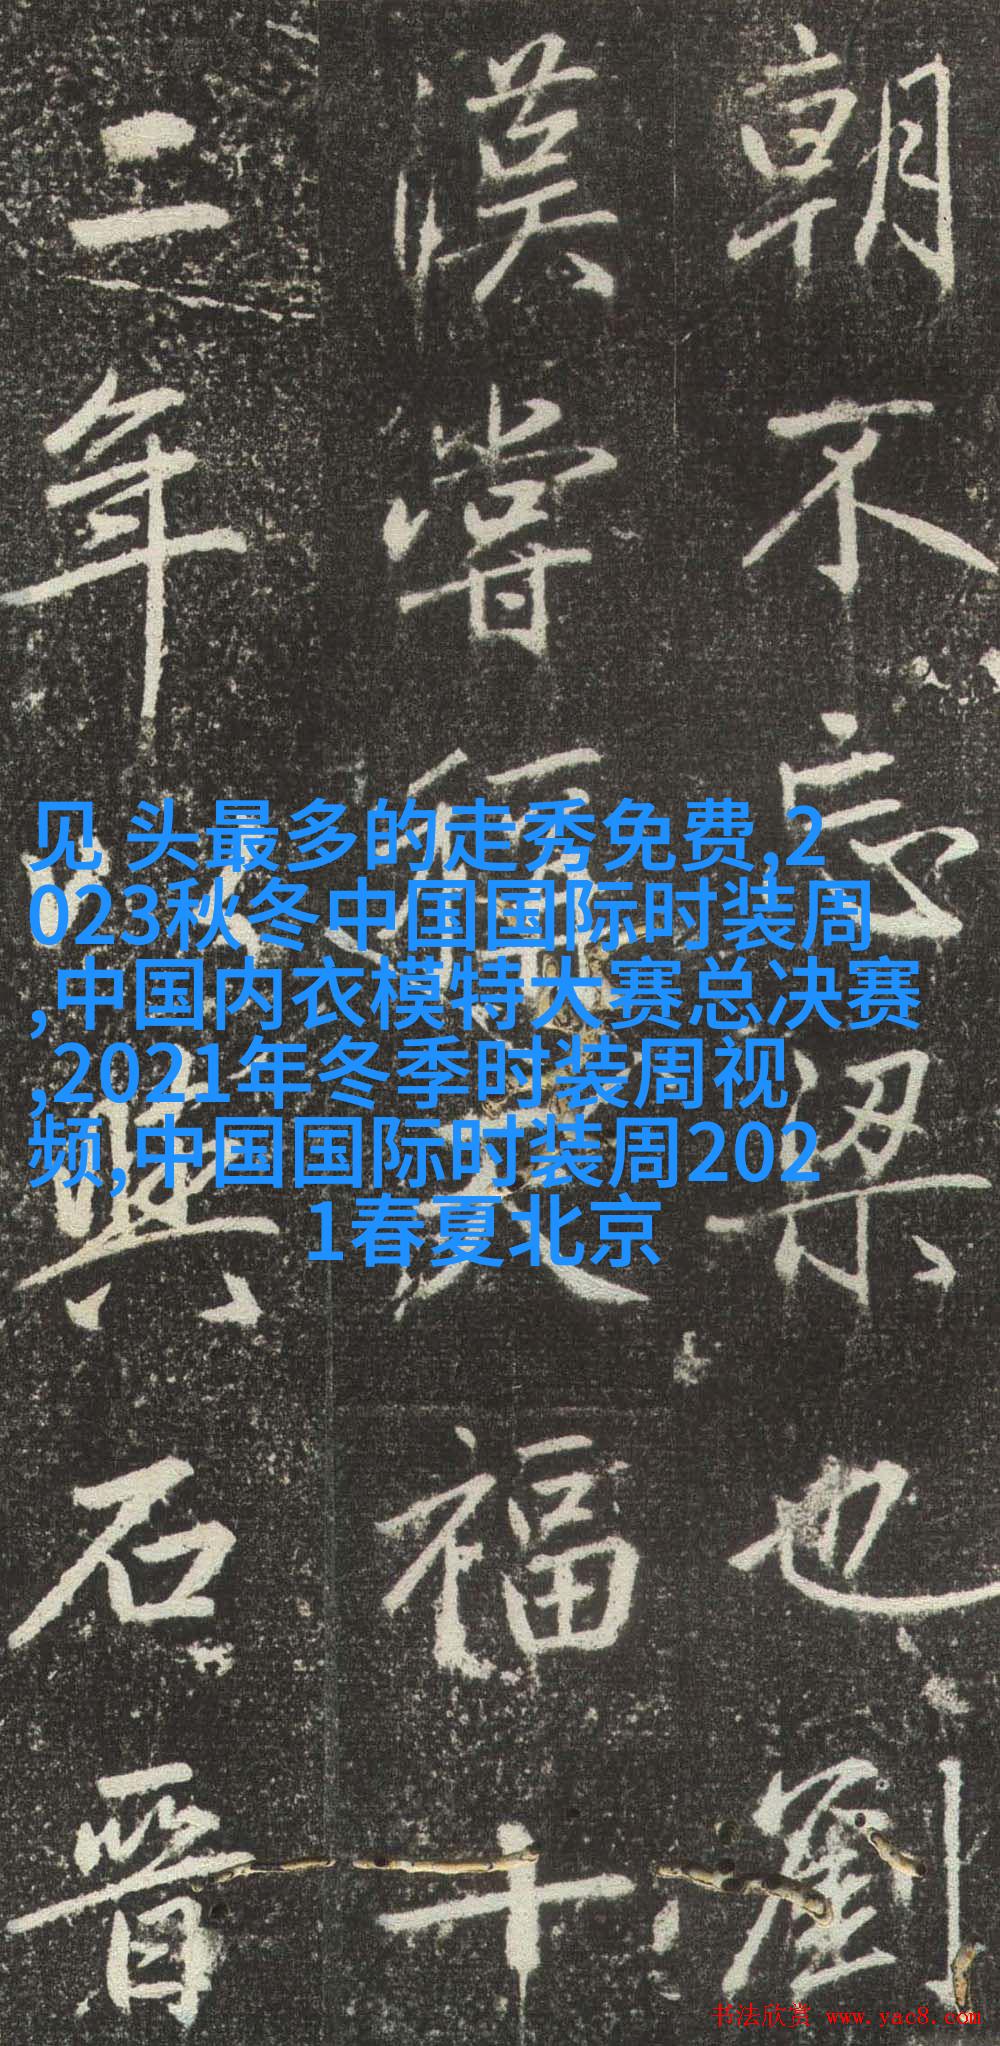 朝不忘梁也劉
漢嘗天福十
二年與石晉
见 头最多的走秀免费,2
023秋冬中国国际时装周
,中国内衣模特大赛总决赛
,2021年冬季时装周视
频,中国国际时装周202
1春夏北京
书法欣赏 www.yac8.com